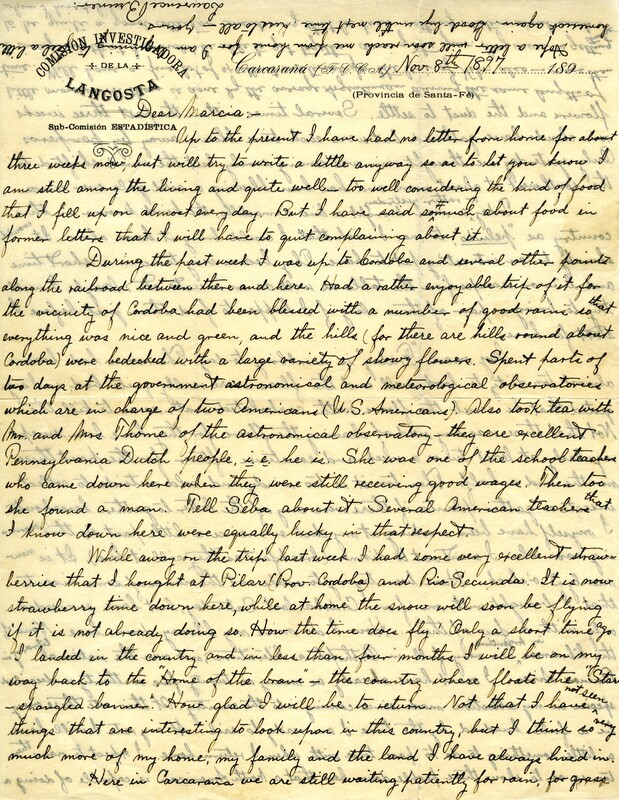 COMISIÓN INVESTIGADORA
DE LA
LANGOSTA
Sub-Comisión ESTADÍSTICA
Carcarañá (F.C.C.A.) Nov. 8th 1897 189
(Provincia de Santa-Fé)
Dear Marcia:-
Up to the present I have had no letter from home for about
three weeks now but will try to write a little anyway so as to let you know I
am still among the living and quite well - too well considering the kind of food
that I fill up on almost every day. But I have said so much about food in
former letters that I will have to quit complaining about it.
During the past week I was up to Cordoba and several other points
along the railroad between there and here. Had a rather enjoyable trip of it for
the vicinity of Cordoba had been blessed with a number of good rains so that
everything was nice and green, and the hills (for there are hills round about
Cordoba) were bedecked with a large variety of showy flowers. Spent parts of
two days at the government astronomical and meteorological observatories
which are in charge of two Americans (U.S. Americans). Also took tea with
Mr. and Mrs Thome of the astronomical observatory - they are excellent
Pennsylvania Dutch people, i.e. he is. She was one of the school teachers
who came down here when they were still receiving good wages. Then too
she found a man. Tell Seba about it. Several American teachers that
I know down here were equally lucky in that respect.
While away on the trip last week I had some very excellent straw-
berries that I bought at Pilar (Prov. Cordoba) and Rio Secunda. It is now
strawberry time down here, while at home the snow will soon be flying
if it is not already doing so. How the time does fly! Only a short time ago
I landed in the country and in less than four months I will be on my
way back to the Home of the brave - the country where floats the "Star
-spangled banner." How glad I will be to return. Not that I have not seen
things that are interesting to look upon in this country, but I think so very
much more of my home, my family and the land I have always lived in.
Here in Carcarañá we are still waiting patiently for rain, for grass
Hope a letter will soon reach me from home for I am feel a little
homesick again. Good by until next time. Kiss to all - yours
Lawrence Bruner.